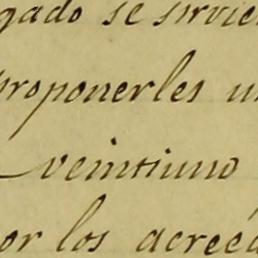 gado se sirvie
proponerles u
veintiuno
por los acreéd